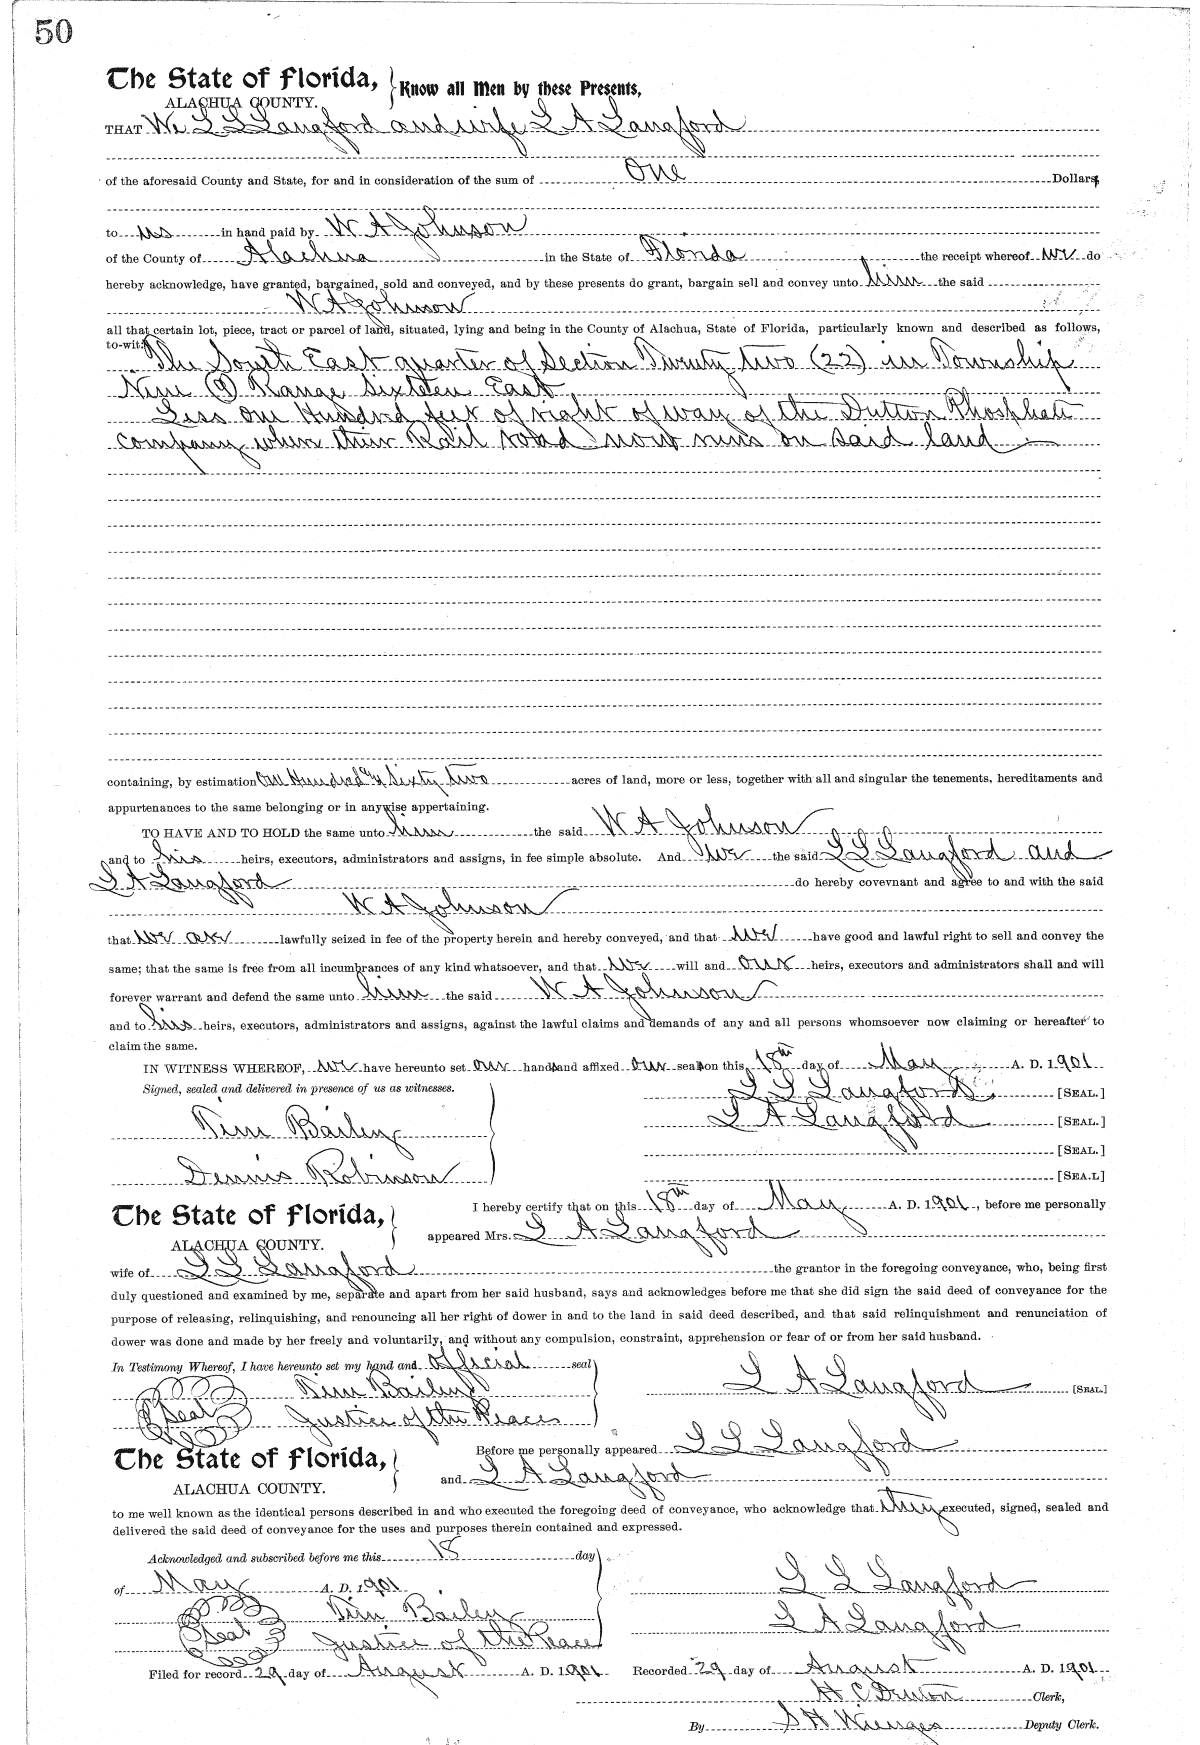 50
The State of Florida, Know all Men by these Presents,
ALACHUA COUNTY.
THAT We L L Langford and wife L A Langford
of the aforesaid County and State, for and in consideration of the sum of One Dollars,
to us in hand paid by W A Johnson
of the County of Alachua in the State of Florida the receipt whereof we do
hereby acknowledge, have granted, bargained, sold and conveyed, and by these presents do grant, bargain sell and convey unto him the said
W A Johnson
all that certain lot, piece, tract or parcel of land, situated, lying and being in the County of Alachua, State of Florida, particularly known and described as follows,
to-wit: The South East quarter of Section Twenty two (22) in Township
Nine (9) Range Sixteen East
Less One Hundred feet of right of way of the Dutton Phosphate
company where their Rail road now runs on said land
containing, by estimation One Hundred & Sixty two acres of land, more or less, together with all and singular the tenements, hereditaments and
appurtenances to the same belonging or in anywise appertaining.
TO HAVE AND TO HOLD the same unto him the said W A Johnson
and to his heirs, executors, administrators and assigns, in fee simple absolute. And we the said L L Langford and
L A Langford do hereby covevnant and agree to and with the said
W A Johnson
that we are lawfully seized in fee of the property herein and hereby conveyed, and that we have good and lawful right to sell and convey the
same; that the same is free from all incumbrances of any kind whatsoever, and that we will and our heirs, executors and administrators shall and will
forever warrant and defend the same unto him the said W A Johnson
and to his heirs, executors, administrators and assigns, against the lawful claims and demands of any and all persons whomsoever now claiming or hereafter to
claim the same.
IN WITNESS WHEREOF, we have hereunto set our hands and affixed our seals on this 18th day of May A. D. 1901
Signed, sealed and delivered in presence of us as witnesses. L L Langford [SEAL.]
L A Langford [SEAL.]
Tim Bailey [SEAL.]
Dennis Robinson [SEA.L]
The State of Florida, I hereby certify that on this 18th day of May A. D. 1901, before me personally
ALACHUA COUNTY. appeared Mrs. L A Langford
wife of L L Langford the grantor in the foregoing conveyance, who, being first
duly questioned and examined by me, separate and apart from her said husband, says and acknowledges before me that she did sign the said deed of conveyance for the
purpose of releasing, relinquishing, and renouncing all her right of dower in and to the land in said deed described, and that said relinquishment and renunciation of
dower was done and made by her freely and voluntarily, and without any compulsion, constraint, apprehension or fear of or from her said husband.
In Testimony Whereof, I have hereunto set my hand and official seal
Tim Bailey L A Langford [SEAL.]
Seal Justice of the Peace
The State of Florida, Before me personally appeared L L Langford
ALACHUA COUNTY. and L A Langford
to me well known as the identical persons described in and who executed the foregoing deed of conveyance, who acknowledge that they executed, signed, sealed and
delivered the said deed of conveyance for the uses and purposes therein contained and expressed.
Acknowledged and subscribed before me this 18 day
of May A. D. 1901 L L Langford
Seal Tim Bailey L A Langford
Justice of the Peace
Filed for record 29 day of August A. D. 1901 Recorded 29 day of August A. D. 1901
H C Denton Clerk,
By S H Wienges Deputy Clerk.